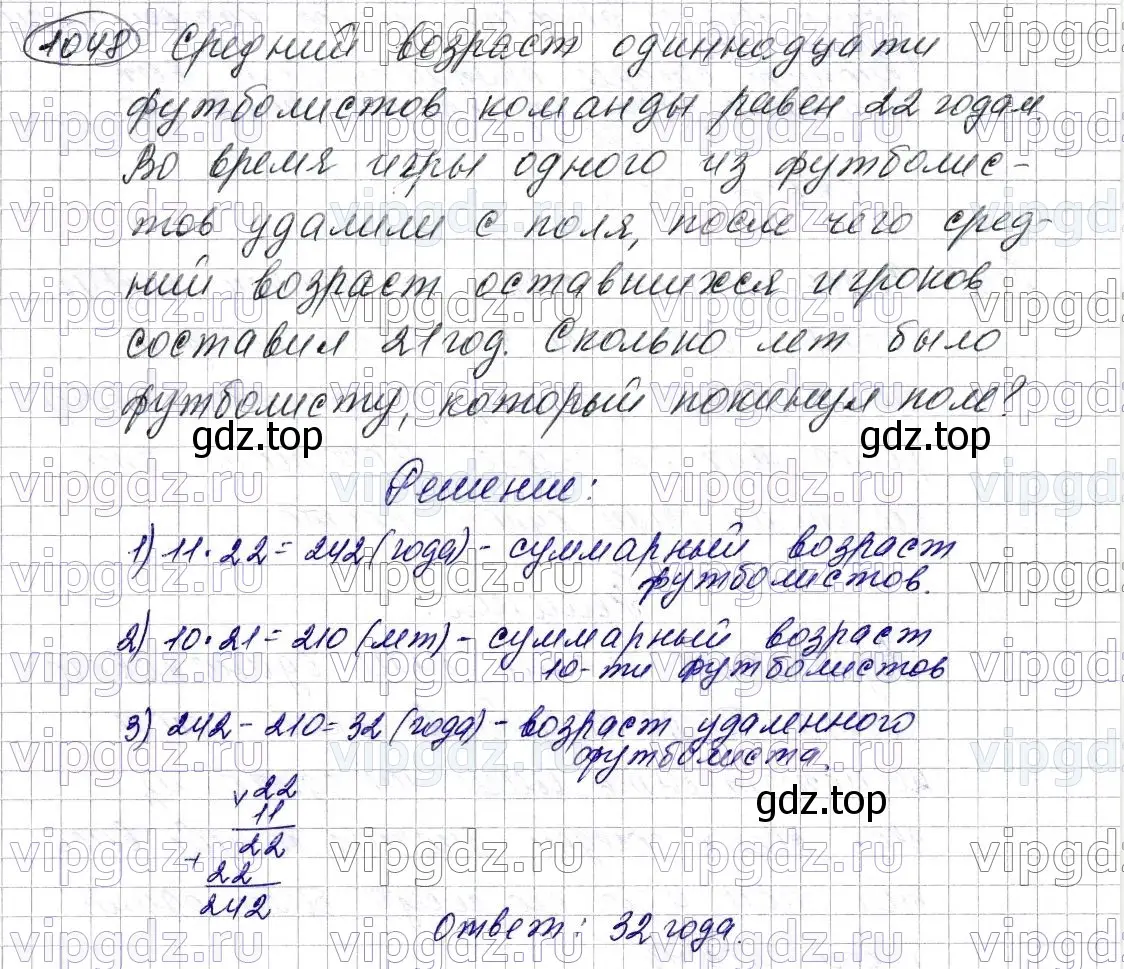 1048 Средний возраст одиннадцати
футболистов команды равен 22 годам.
Во время игры одного из футболис-
тов удалили с поля, после чего сред-
ний возраст оставшихся игроков
составил 21 год. Сколько лет было
футболисту, который покинул поле?
gdz.top gdz.top
Решение:
1) 11·22=242(года)-суммарный возраст
футболистов.
2) 10·21=210(лет)-суммарный возраст
10-ти футболистов
3) 242-210=32(года)-возраст удаленного
футболиста.
gdz.top
22
11
22
+
22
242
Ответ: 32 года.
vipgdz.ru